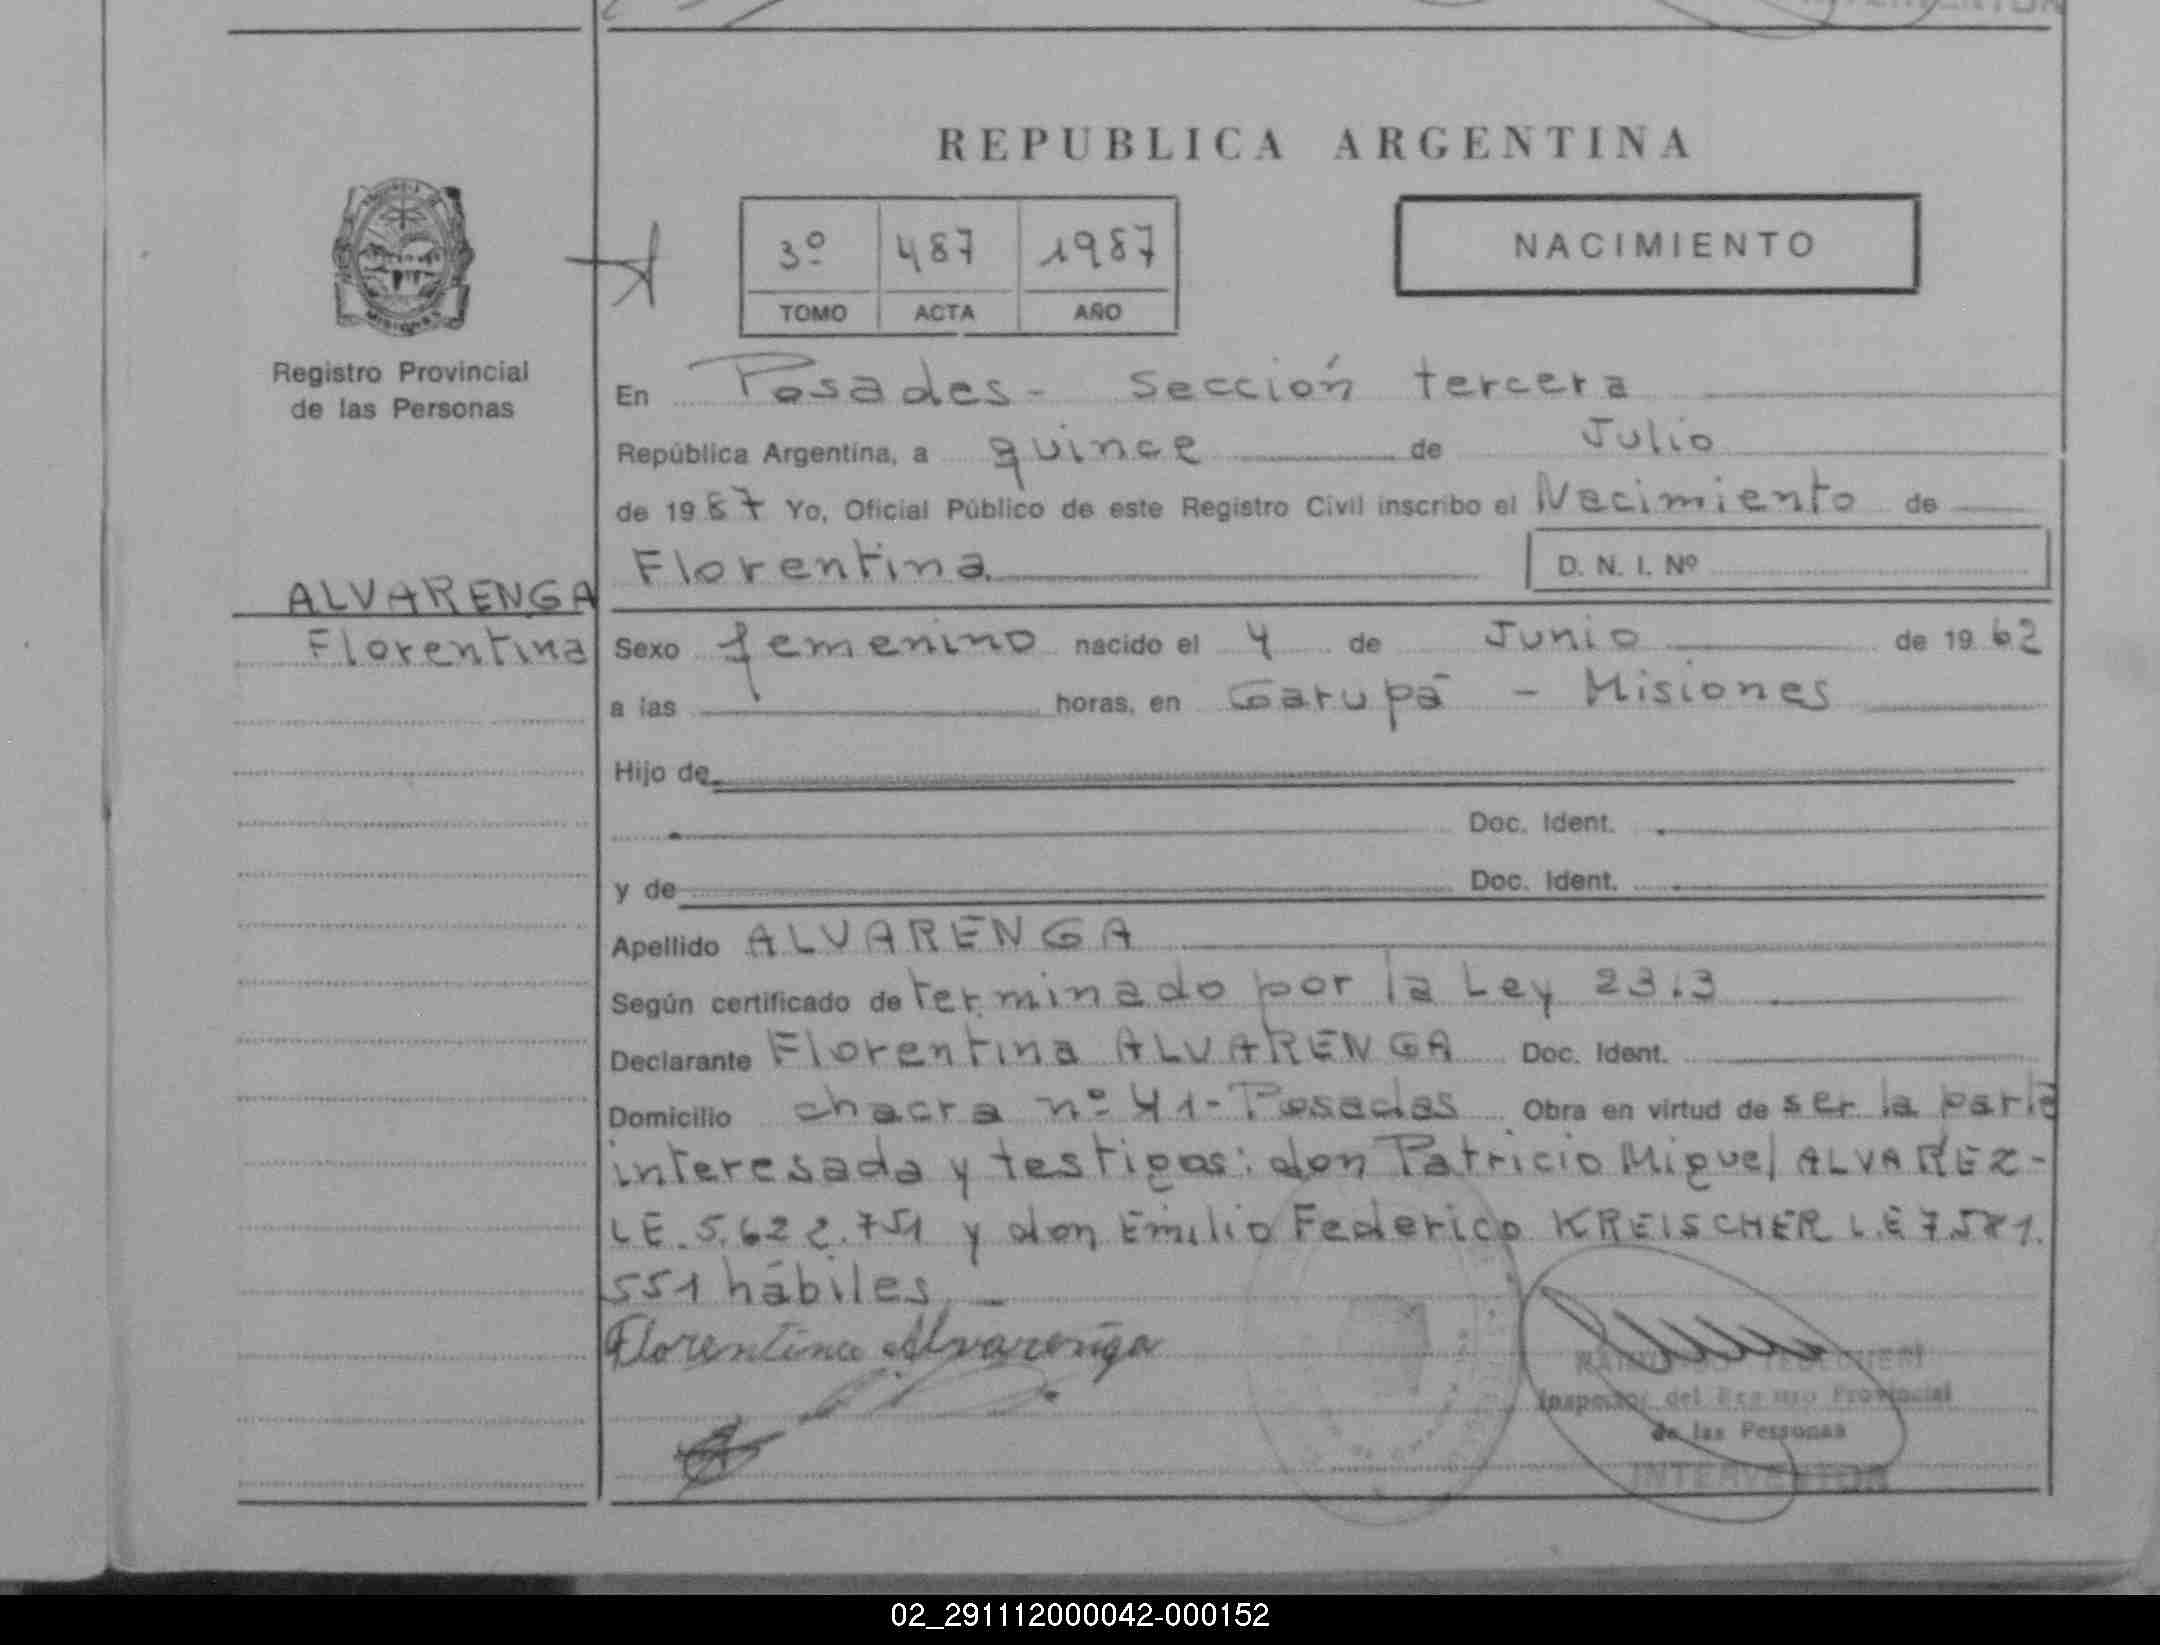 REPUBLICA ARGENTINA
3º 487 1987
TOMO ACTA AÑO
NACIMIENTO
Registro Provincial
de las Personas
ALVARENGA
Florentina
En Posadas - sección tercera
República Argentina, a quince de Julio
de 1987 Yo, Oficial Público de este Registro Civil inscribo el Nacimiento de
Florentina D. N. I. Nº
Sexo femenino nacido el 4 de Junio de 1962
a las horas, en Garupá - Misiones
Hijo de
Doc. Ident.
y de Doc. Ident.
Apellido ALVARENGA
Según certificado de terminado por la Ley
Declarante Florentina ALVARENGA Doc. Ident.
Domicilio chacra nº 41 - Posadas Obra en virtud de ser la parte
interesada y testigos: don Patricio Miguel ALVAREZ -
LE. 5.622.751 y don Emilio Federico KREISCHER L.E 7.581.
551 hábiles. -
Florentina Alvarenga
Inspector del Registro Provincial
de las Personas
INTERVENTOR
02_291112000042-000152